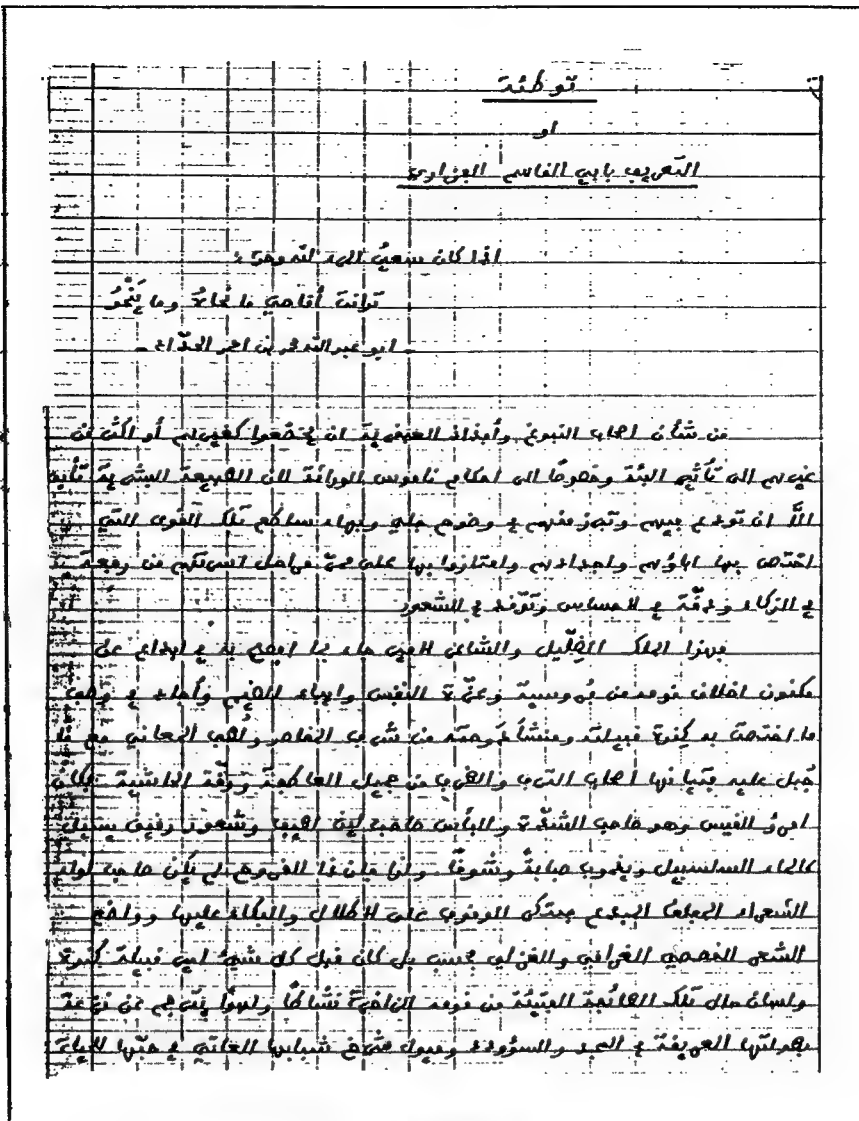 توطئة
او
التعريف بابي القاسم الفزاري
اذا كان سعيُ المرء لله وحده
تراثت أقاصي ما نحاه وما ينحُو
- ابو عبد الله محمد بن احمر الحدّاد -
من شأن اصحاب النبوغ وأفذاذ العبقرية ان يخضعوا كغيرهم أو اكثر من
غيرهم الى تأثير البيئة وخضوعًا الى احكام ناموس الوراثة لان الطبيعة البشرية تأبى
الاّ ان تودع فيهم وتبرز منهم في وضوح جلي وبهاء ساطع تلك القوى التي
اختص بها اباؤهم واجدادهم وامتازوا بها على مرّ مراحل اسرتهم من رفعة
في الذكاء ودقّة في الاحساس وتوقّد في الشعور
فهذا الملك الضِّلّيل والشاعر الذي جاء بما ابدع به في ابداع عن
مكنون اخلاق قومه من فروسية وعزّة النفس واباء الضيم وأجاد في وصف
ما اختصت به كندة قبيلته ومنشأ دوحته من شرف العناصر ولُهب المعاني مع ما
جُبل عليه فتيانها أصحاب الترف والظرف من جميل العاطفة ورقّة الحاشية فكان
امرؤ القيس وهو صاحب الشدّة والبأس صاحب لين اهيب وشعور رقيق يسيل
كالماء السلسبيل ويذوب صبابةً وشوقًا ولذا فان ذا القروح لم يكن صاحب لواء
الشعراء المبدع مبتكر الوقوف على الاطلال والبكاء عليها وواضع
الشعر القصصي الغرامي والغزلي فحسب بل كان قبل كل شيئ ابن قبيلة كندة
ولسان حال تلك الطائفة الفتيّة من قومه الزاخرة نشاطًا ولهوًا يترجم عن نزعة
بطولتها العريقة في المجد والسؤودد وميول شرخ شبابها العاتي في حبّها للحياة